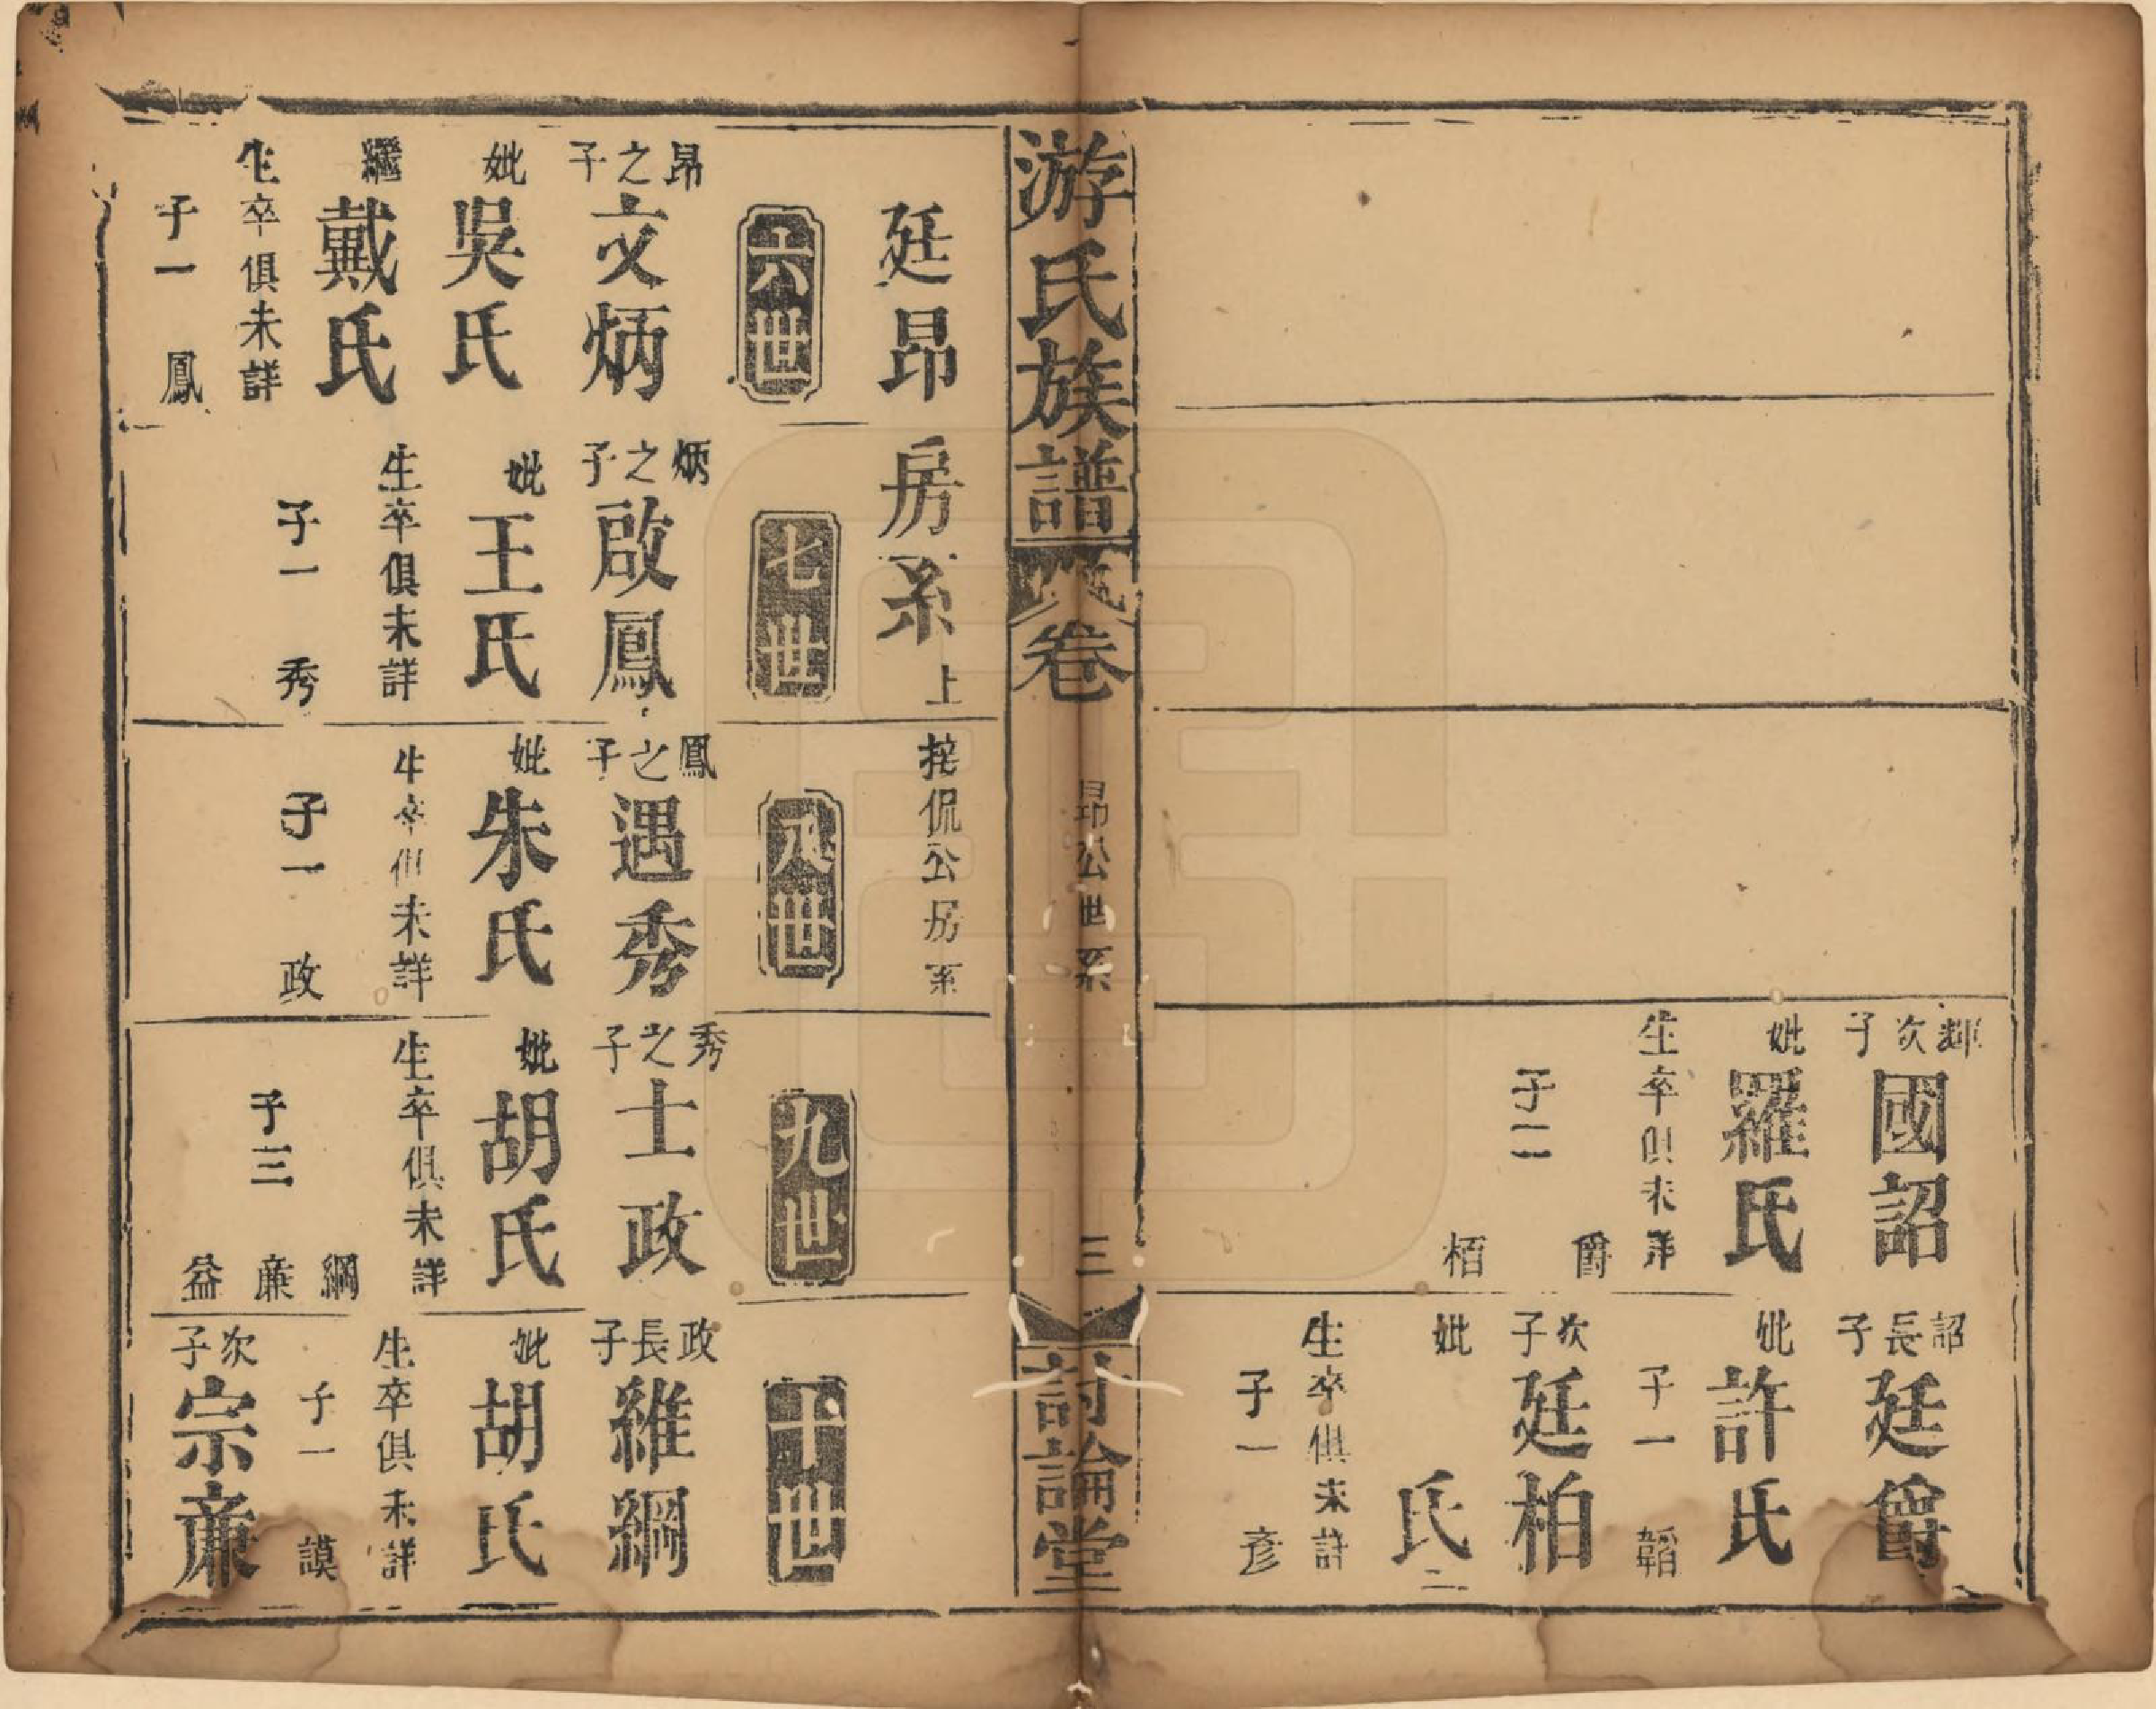 輝次子
國詔
妣
羅氏
生卒俱未詳
子二
爵
栢
詔長子
廷爵
妣
許氏
子一
韜
次子
廷柏
妣
氏
生卒俱未詳
子一
彥
游氏族譜
卷
昂公世系
三
討論堂
廷昂房系上
侃公房系
六世
昂之子
文炳
妣
吳氏
繼
戴氏
生卒俱未詳
子一
鳳
七世
炳之子
啟鳳
妣
王氏
生卒俱未詳
子一
秀
八世
鳳之子
遇秀
妣
朱氏
生卒俱未詳
子一
政
九世
秀之子
士政
妣
胡氏
生卒俱未詳
子三
綱
亷
益
十世
政長子
維綱
妣
胡氏
生卒俱未詳
子一
謨
次子
宗亷